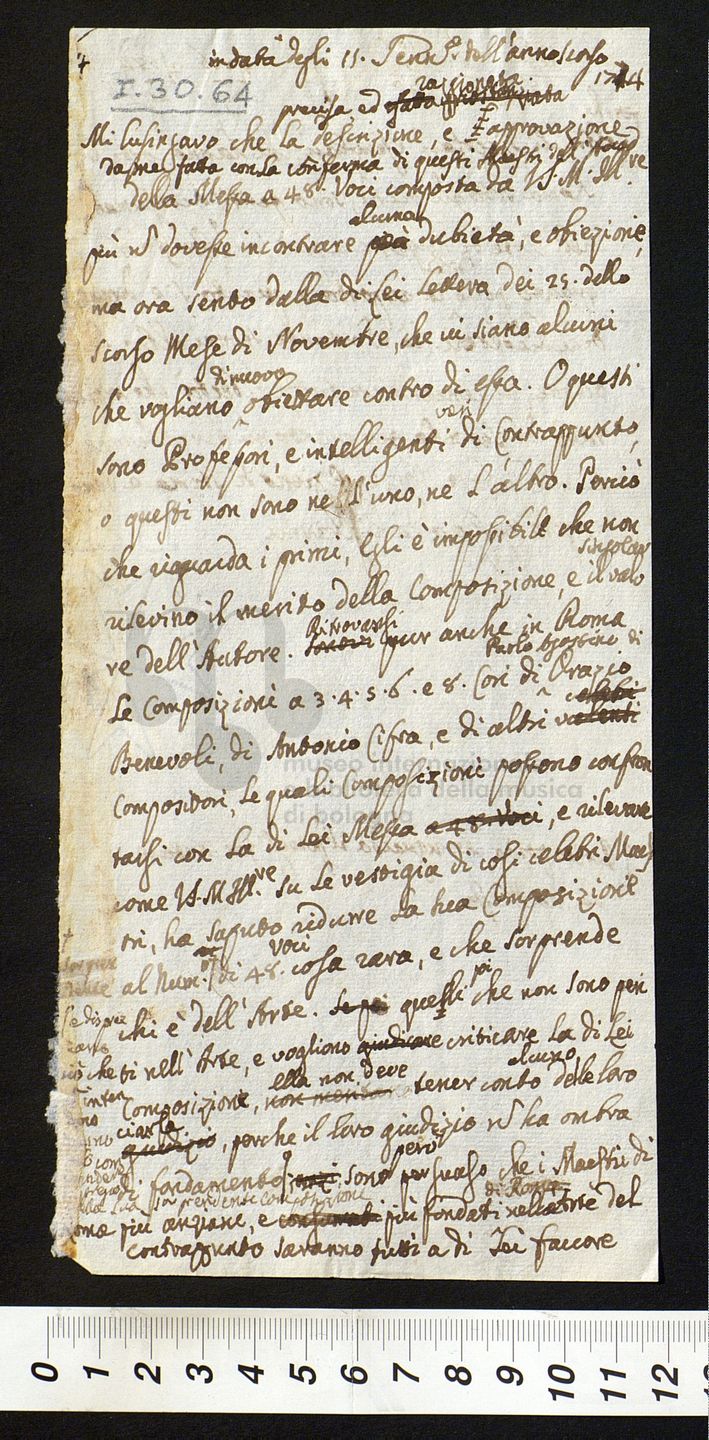 in data degli 11. Genn.º dell'anno scorso
1744
I.30.64
ragionata
precisa, ed
Mi lusingavo che la descrizione, e approvazione
da me fatta con la conferma di questi Maestri dell'
della Messa a 48. Voci composta da V.S.M.M.re
alcuna
più nō dovesse incontrare più dubietà, e obiezione,
ma ora sento dalla di Lei Lettera dei 25. dello
scorso Mese di Novembre, che vi siano alcuni
di nuovo
che vogliano obiettare contro di essa. O questi
veri
sono Professori, e intelligenti di Contrappunto,
o questi non sono ne l'uno, ne l'altro. Perciò
che riguarda i primi, Egli è impossibile che non
singolar
rilevino il merito della Composizione, e il valo
re dell'Autore. Ritrovarsi pur anche in Roma
Paolo Agostino di
Le Composizioni a 3. 4. 5. 6. e 8. Cori di Orazio
celebri
Benevoli, di Antonio Cifra, e di altri valenti
Compositori, le quali Composizioni possono confron
tarsi con la di Lei Messa a 48. Voci, e rilevare
come V.S.M.M.re su le vestigia di così celebri Maes
tri, ha saputo ridurre la sua Composizione
voci
al Num.º di 48. cosa rara, e che sorprende
poi
chi è dell'Arte. Se poi questi che non sono peri
ti nell'Arte, e vogliono giudicare criticare la di Lei
ella non deve alcuno
Composizione, tener conto delle loro
ciarla
giudizio, perche il loro giudizio nō ha ombra
però
di fondamento, sono persuaso che i Maestri di
sorprendente composizione
di Roma
più anziani, e consumati più fondati nell'Arte del
contrappunto saranno tutti a di Lei favore
museo internazionale
della musica
di bologna
0 1 2 3 4 5 6 7 8 9 10 11 12